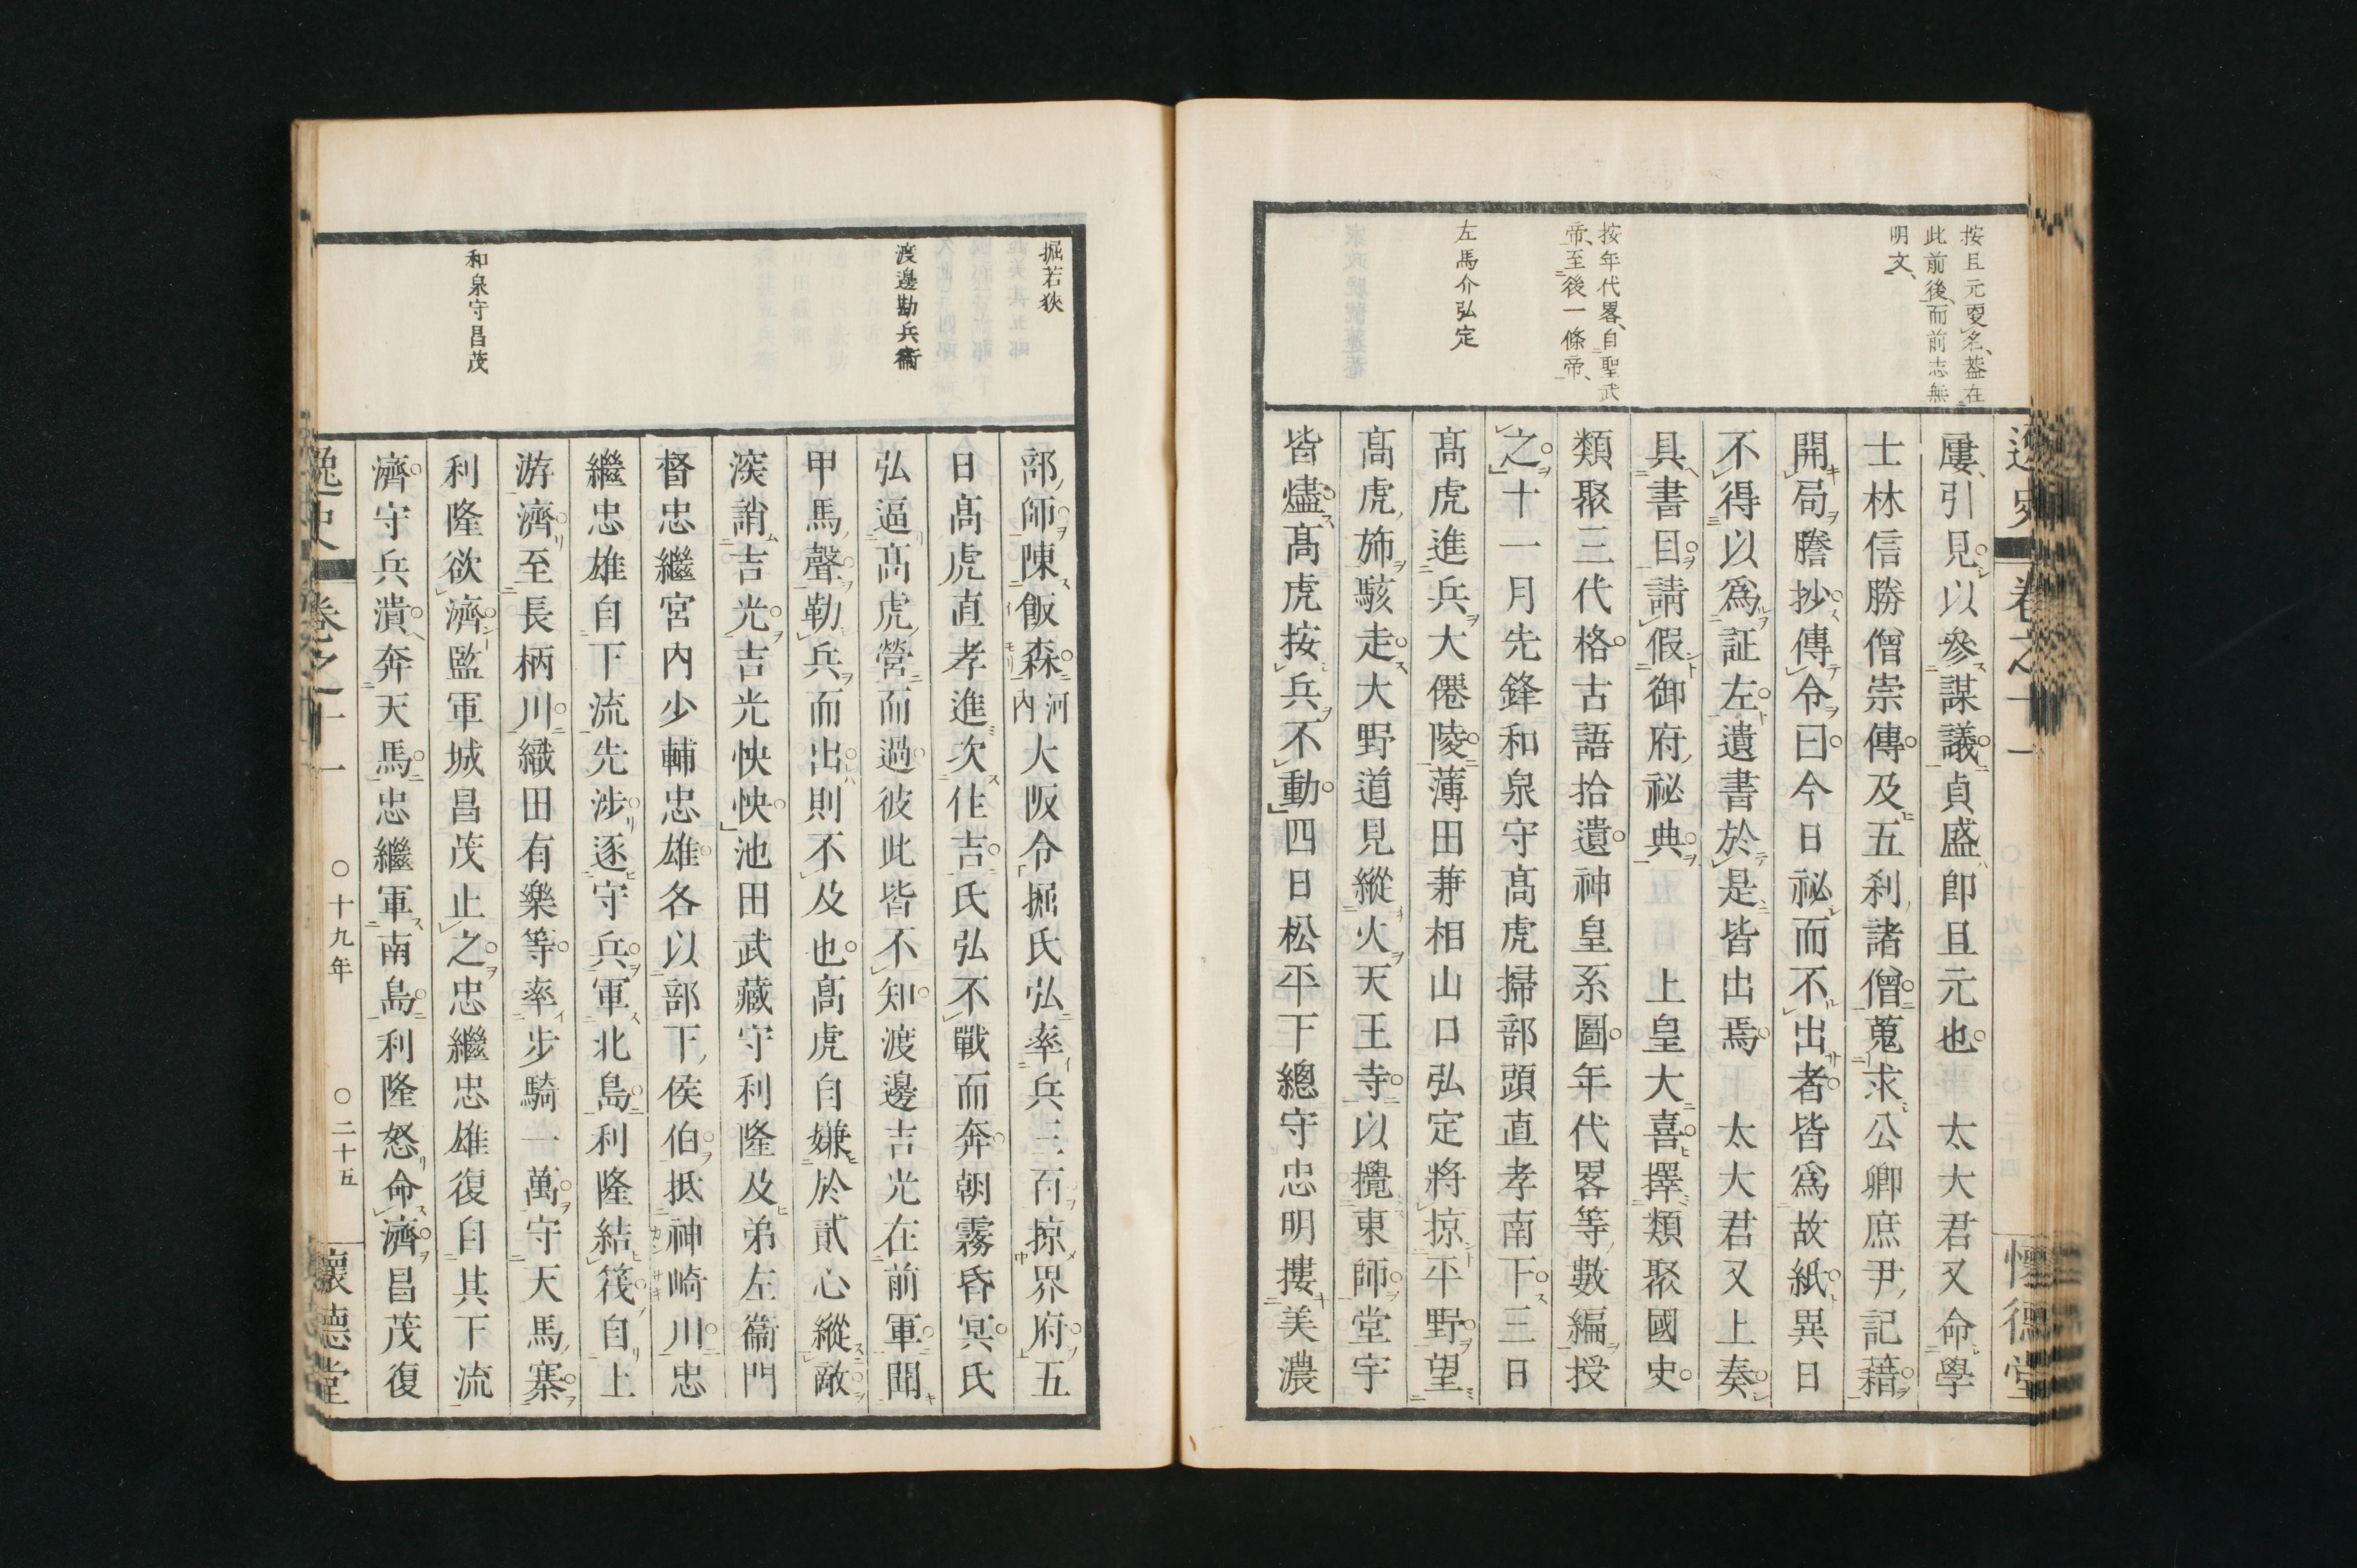 按且元更名、蓋在
此前後、而前志無
明文、
按年代畧、自聖武
帝、至後一條帝、
左馬介弘定
屢引見以參謀議貞盛卽且元也　太大君又命學
士林信勝僧崇傳及五刹諸僧蒐求公卿庶尹記籍
開局謄抄傳令曰今日祕而不出者皆爲故紙異日
不得以爲証左遺書於是皆出焉　太大君又上奏
具書目請假御府祕典　上皇大喜擇類聚國史
類聚三代格古語拾遺神皇系圖年代畧等數編授
之十一月先鋒和泉守高虎掃部頭直孝南下三日
高虎進兵大僊陵薄田兼相山口弘定將掠平野望
高虎斾駭走大野道見縱火天王寺以攪東師堂宇
皆燼高虎按兵不動四日松平下總守忠明摟美濃
堀若狹
渡邊勘兵衞
和泉守昌茂
部師陳飯森河內大阪令堀氏弘率兵三百掠界府五
日高虎直孝進次住吉氏弘不戰而奔朝霧昏冥氏
弘逼高虎營而過彼此皆不知渡邊吉光在前軍聞
甲馬聲勒兵而出則不及也高虎自嫌於貳心縱敵
深誚吉光吉光怏怏池田武藏守利隆及弟左衞門
督忠繼宮內少輔忠雄各以部下侯伯抵神崎川忠
繼忠雄自下流先涉逐守兵軍北島利隆結筏自上
游濟至長柄川織田有樂等率步騎一萬守天馬寨
利隆欲濟監軍城昌茂止之忠繼忠雄復自其下流
濟守兵潰奔天馬忠繼軍南島利隆怒命濟昌茂復
逸史　卷之十一　〇十九年　〇二十五　懷德堂